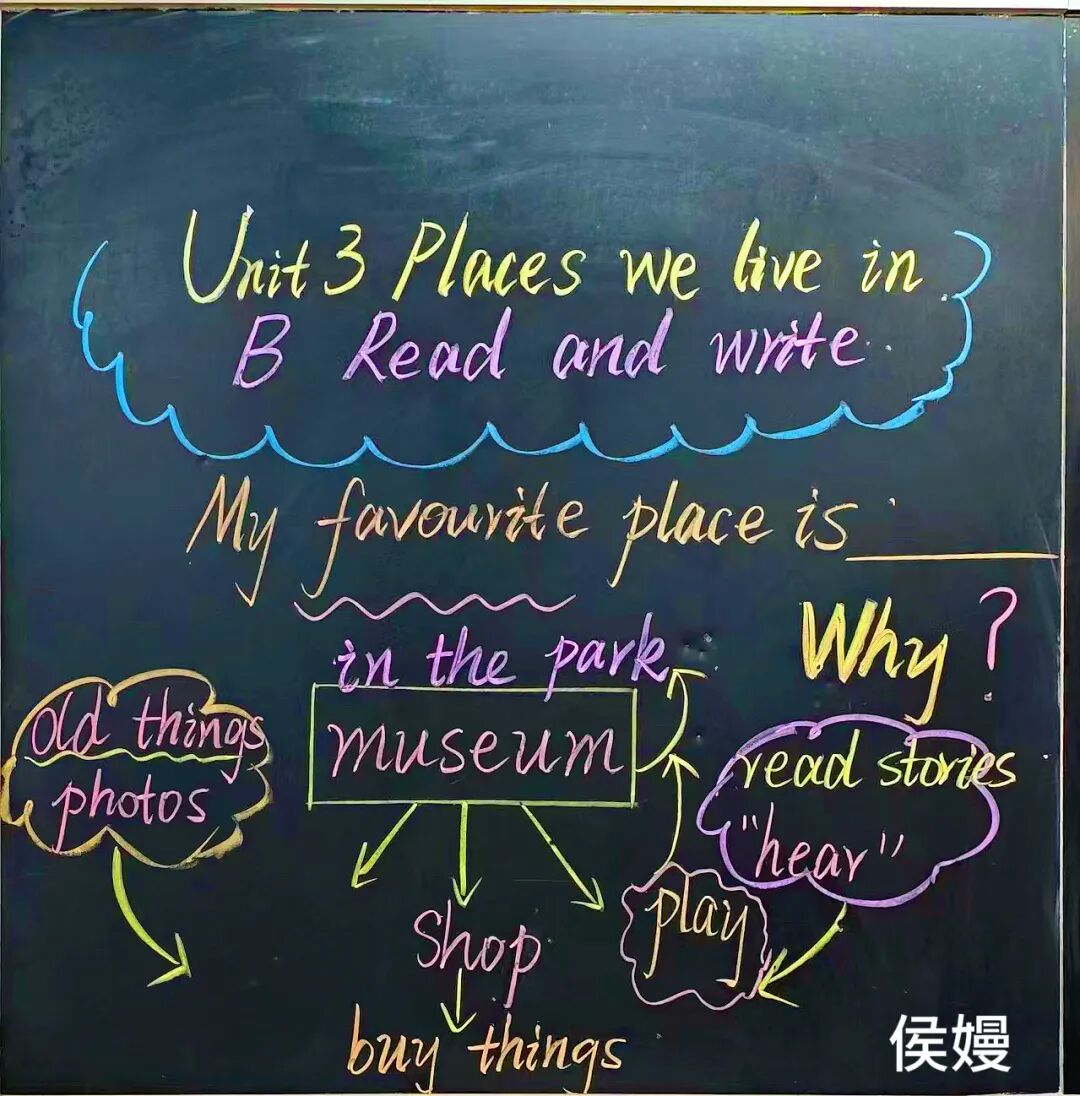 Unit 3 Places we live in
B Read and write
My favourite place is
Why?
in the park
museum
old things
photos
read stories
"hear"
play
Shop
buy things
侯嫚